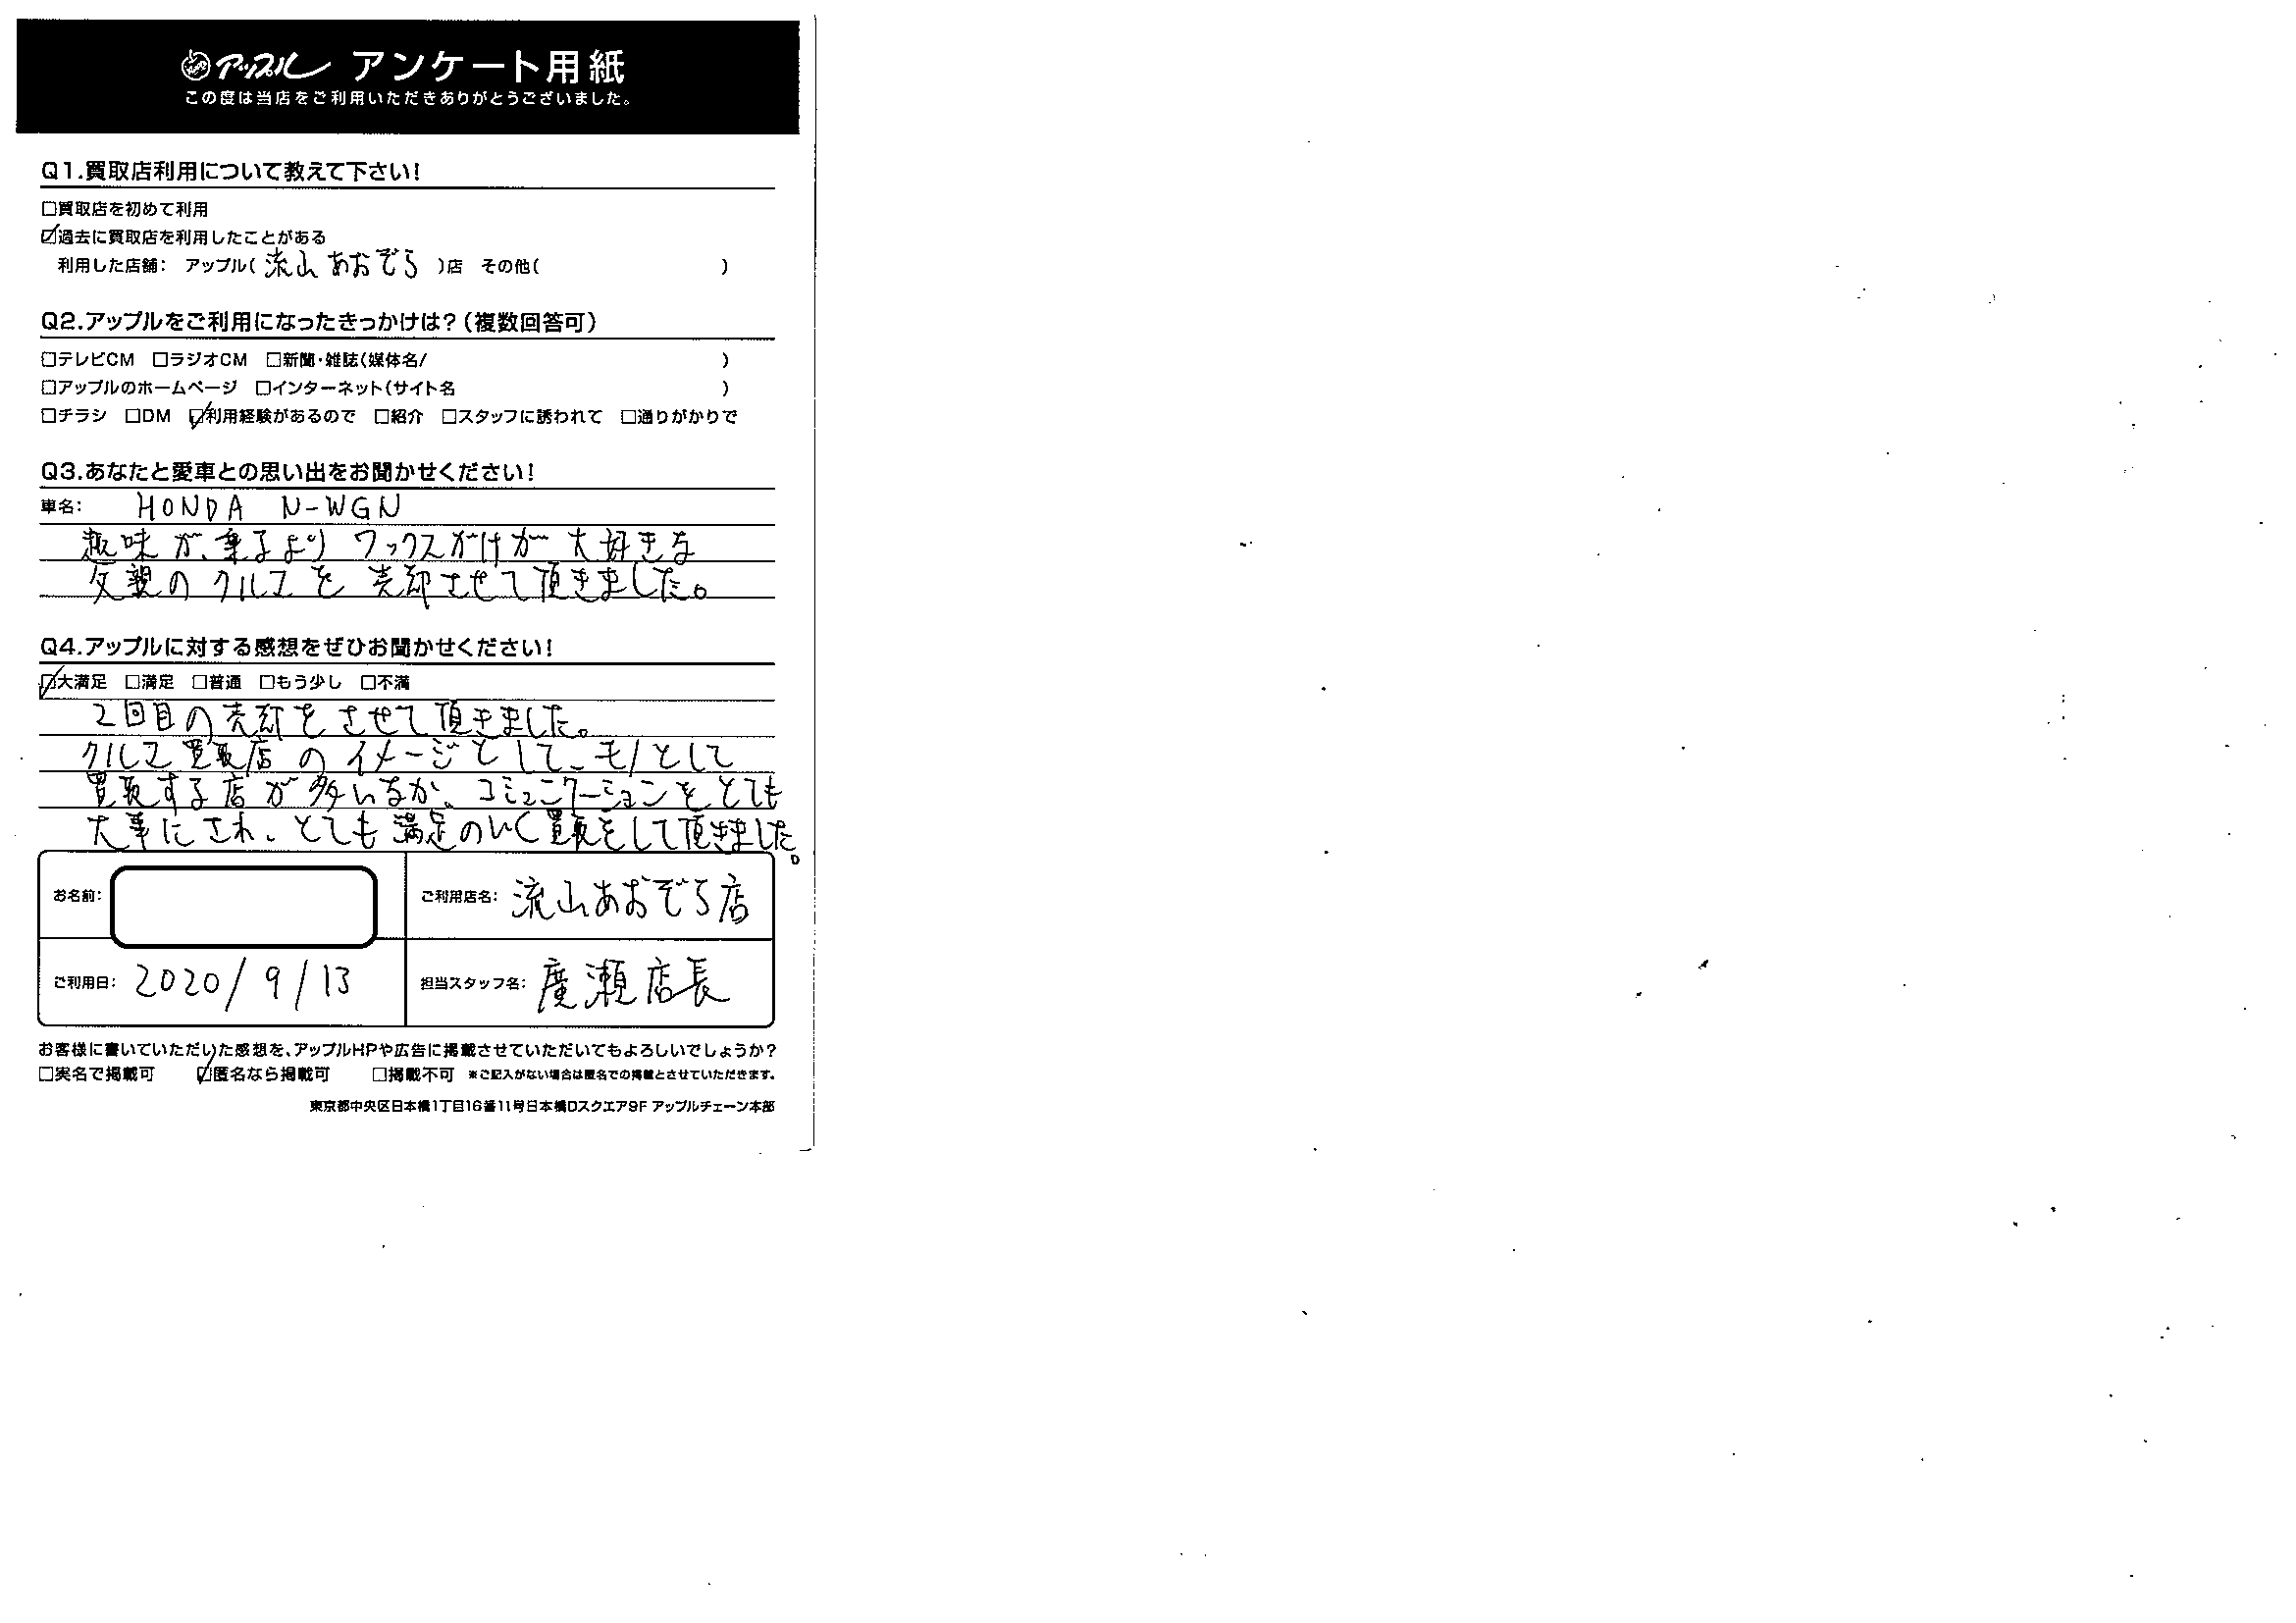 アップル アンケート用紙
この度は当店をご利用いただきありがとうございました。
Q1.買取店利用について教えて下さい!
□買取店を初めて利用
☑過去に買取店を利用したことがある
利用した店舗: アップル(流山あおぞら)店 その他( )
Q2.アップルをご利用になったきっかけは?(複数回答可)
□テレビCM □ラジオCM □新聞・雑誌(媒体名/ )
□アップルのホームページ □インターネット(サイト名 )
□チラシ □DM ☑利用経験があるので □紹介 □スタッフに誘われて □通りがかりで
Q3.あなたと愛車との思い出をお聞かせください!
車名: HONDA N-WGN
趣味が、乗るより ワックスがけが大好きな
父親のクルマを売却させて頂きました。
Q4.アップルに対する感想をぜひお聞かせください!
☑大満足 □満足 □普通 □もう少し □不満
2回目の売却をさせて頂きました。
クルマ買取店のイメージとして、モノとして
買取する店が多いなか、コミュニケーションをとても
大事にされ、とても満足のいく買取をして頂きました。
お名前:
ご利用店名: 流山あおぞら店
ご利用日: 2020/9/13
担当スタッフ名: 廣瀬店長
お客様に書いていただいた感想を、アップルHPや広告に掲載させていただいてもよろしいでしょうか?
□実名で掲載可 ☑匿名なら掲載可 □掲載不可 ※ご記入がない場合は匿名での掲載とさせていただきます。
東京都中央区日本橋1丁目16番11号日本橋Dスクエア9F アップルチェーン本部